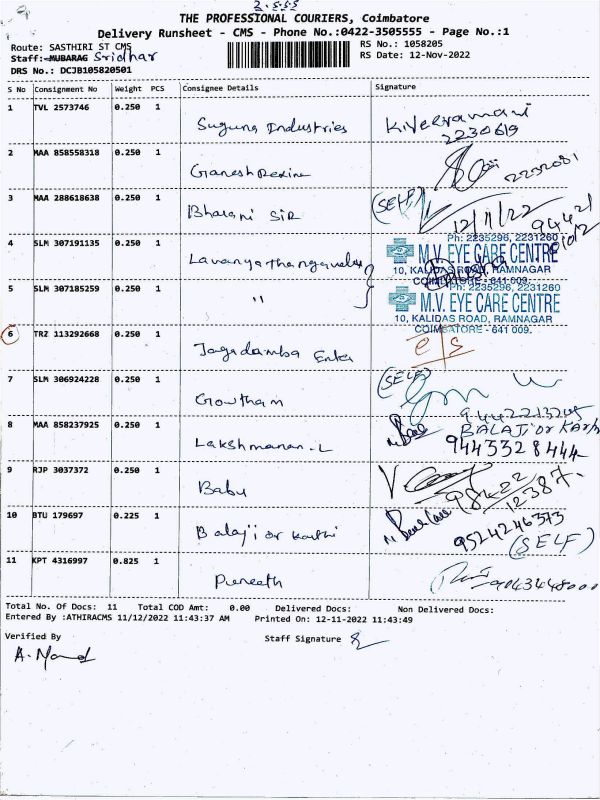 2.555
THE PROFESSIONAL COURIERS, Coimbatore
Delivery Runsheet - CMS - Phone No.:0422-3505555 - Page No.:1
Route: SASTHIRI ST CMS RS No.: 1058205
Staff: MUBARAG Sridhar RS Date: 12-Nov-2022
DRS No.: DCJB105820501
S No Consignment No Weight PCS Consignee Details Signature
1 TVL 2573746 0.250 1 Suguna Industries K.Veeramani
2230619
2 MAA 858558318 0.250 1 Ganesh Rexine
3 MAA 288618638 0.250 1 Bharani SIR (SELF)
12/11/22
4 SLM 307191135 0.250 1 Lavanya thangavelu
Ph: 2235296, 2231260
M.V. EYE CARE CENTRE
10, KALIDAS ROAD, RAMNAGAR
COIMBATORE - 641 009.
5 SLM 307185259 0.250 1 "
Ph: 2235296, 2231260
M.V. EYE CARE CENTRE
10, KALIDAS ROAD, RAMNAGAR
COIMBATORE - 641 009.
6 TRZ 113292668 0.250 1 Jagadamba Enter
7 SLM 306924228 0.250 1 Gowtham (SELF)
8 MAA 858237925 0.250 1 Lakshmanan.L
BALAJI or Karthi
9445328444
9 RJP 3037372 0.250 1 Babu
98422
12387
10 BTU 179697 0.225 1 Balaji or Karthi
9524246373
(SELF)
11 KPT 4316997 0.825 1 Puneeth
Total No. Of Docs: 11 Total COD Amt: 0.00 Delivered Docs: Non Delivered Docs:
Entered By :ATHIRACMS 11/12/2022 11:43:37 AM Printed On: 12-11-2022 11:43:49
Verified By Staff Signature